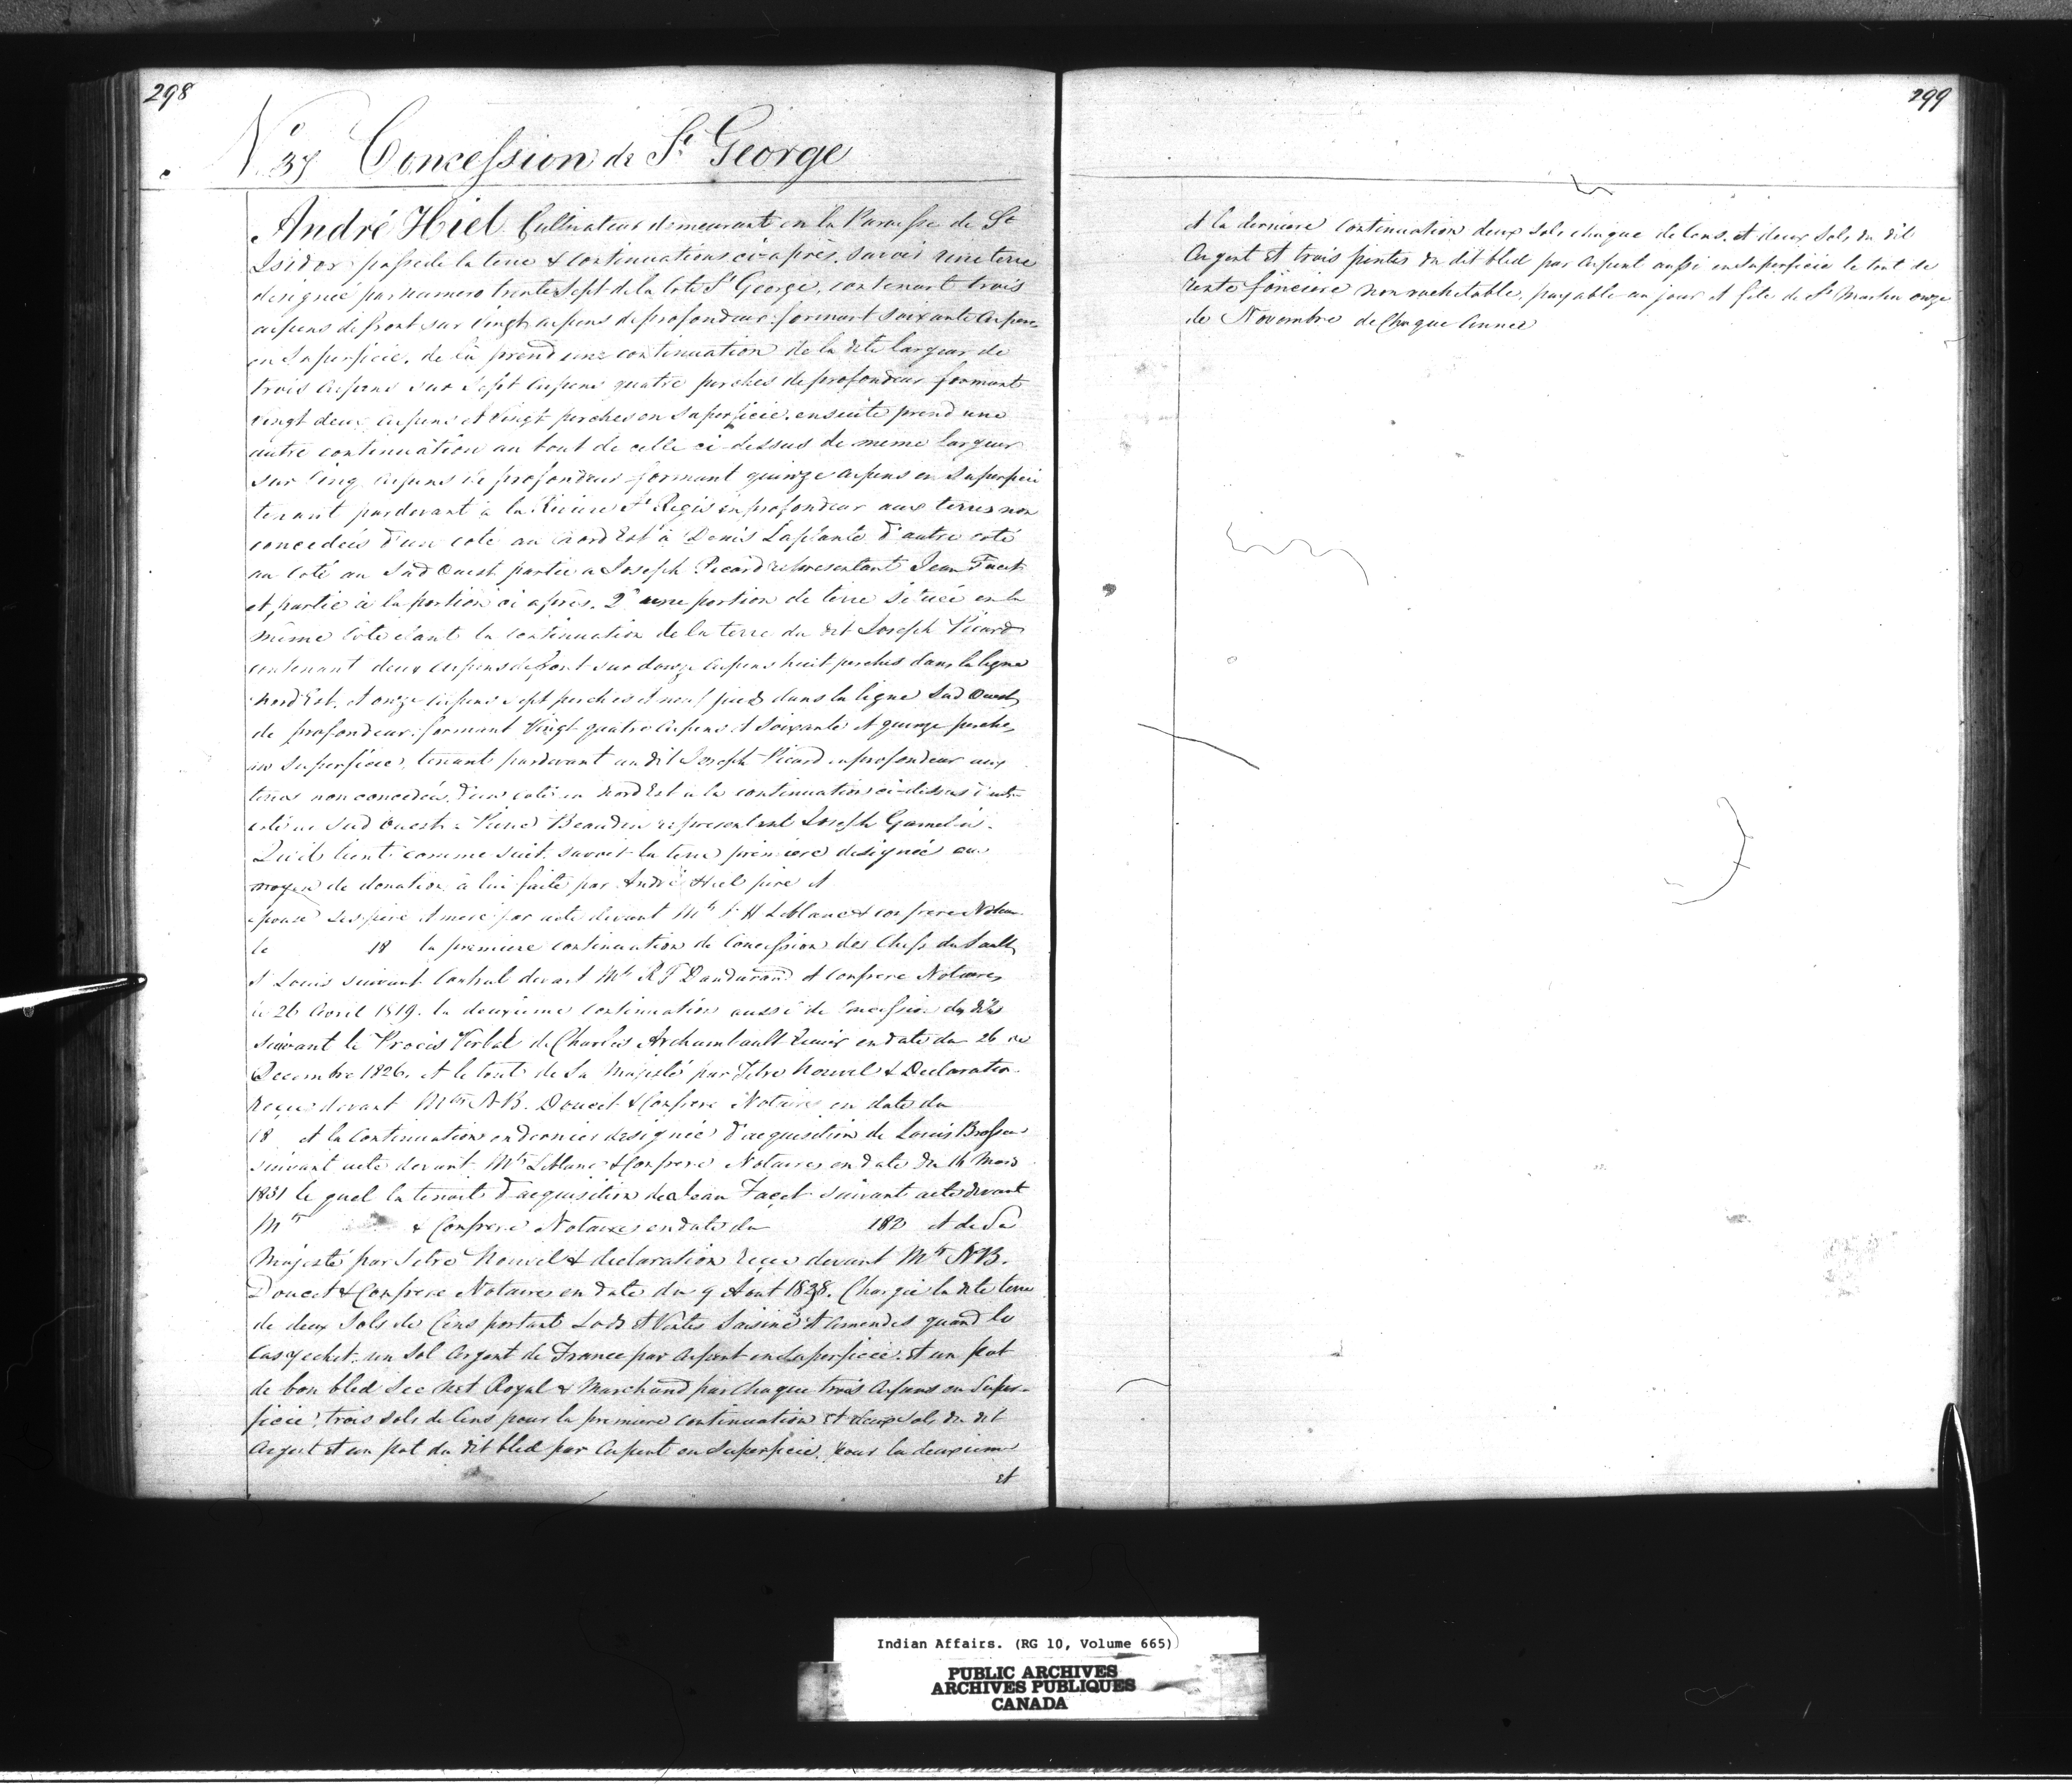 298
N° 37 Concession de St George
André Hiel Cultivateur demeurant en la Paroisse de St
Isidor possede la terre & continuations ci-après, savoir une terre
designée par numero trente Sept de la Cote St George, contenant trois
arpens de front sur vingt arpens de profondeur formant Soixante Arpens
en Superficie, de là prend une continuation de la dite largeur de
trois arpens sur Sept arpens quatre perches de profondeur formant
vingt deux arpens et vingt perches en Superficie, ensuite prend une
autre continuation au bout de celle ci-dessus de meme largeur
sur Cinq arpens de profondeur formant quinze arpens en Superficie
tenant pardevant à la Riviere St Regis en profondeur aux terres non
concedées d'un coté au Nord Est à Denis Laplante d'autre coté
au Coté au Sud Ouest partie a Joseph Picard representant Jean
et partie à la portion ci après. 2° une portion de terre Située en la
même Cote étant la Continuation de la terre du dit Joseph Picard
contenant deux arpens de front sur douze arpens huit perches dans la ligne
Nord Est, et onze arpens sept perches et neuf pieds dans la ligne Sud Ouest
de profondeur formant Vingt quatre arpens et Soixante et quinze perches
en Superficie, tenant pardevant au dit Joseph Picard en profondeur aux
terres non concedées, d'un coté au Nord Est à la continuation ci-dessus d'autre
coté au Sud Ouest à Beaudin representant Joseph Gamelin.
Qu'il tient comme suit, savoir la terre premiere designée au
moyen de donation à lui faite par André Hiel pere et
epouse Ses pere et mere par acte devant Mtre Leblanc & confrere Notaires
le 18 la premiere continuation de Concession des Chefs du Sault
St Louis suivant Contrat devant Mtre R F Dandurand et Confrere Notaires
le 26 Avril 1819. la deuxieme continuation aussi de Concession des dits
suivant le Procès Verbal de Charles Archambault Junior en date du 26 de
Decembre 1826. et le tout de Sa Majesté par Titre Nouvel & Declaration
reçu devant Mtre N.B. Doucet & Confrere Notaires en date du
18 et la Continuation en dernier designée d'acquisition de Louis
suivant acte devant Mtre Leblanc & Confrere Notaires en date du 14 Mars
1831 le quel la tenoit d'acquisition de Jean suivant acte devant
Mtre & Confrere Notaires en date du 182 et de Sa
Majesté par Titre Nouvel & declaration reçu devant Mtre N.B.
Doucet & Confrere Notaires en date du 9 Aout 1828. Chargée la dite terre
de deux Sols de Cens portant Lods et Ventes Saisine et Amendes quand le
cas y echet, un Sol Argent de France par Arpent en Superficie et un pot
de bon bled Sec Net Royal & Marchand par chaque trois Arpens en Super-
ficie, trois sols de Cens pour la premiere Continuation et deux Sols du dit
Argent et un pot du dit bled par Arpent en Superficie. pour la deuxieme
et
299
et la derniere Continuation deux Sols chaque de Cens. et deux Sols du dit
Argent et trois pintes du dit bled par Arpent aussi en Superficie le tout de
rente foncière non rachetable, payable au jour et fête de St Martin onze
de Novembre de Chaque Année
Indian Affairs. (RG 10, Volume 665)
PUBLIC ARCHIVES
ARCHIVES PUBLIQUES
CANADA